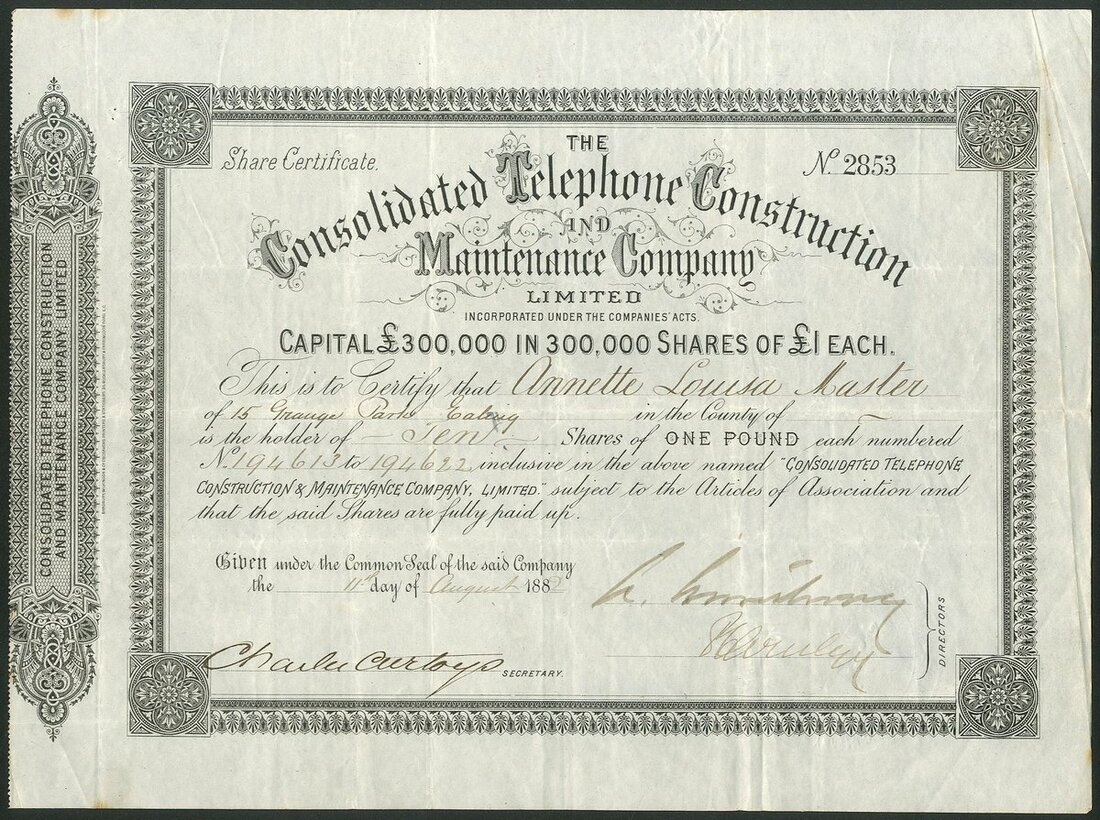 Share Certificate.
N. 2853
THE
Consolidated Telephone Construction
AND
Maintenance Company
LIMITED
INCORPORATED UNDER THE COMPANIES' ACTS.
CAPITAL £300,000 IN 300,000 SHARES OF £1 EACH.
This is to Certify that Annette Louisa Master
of 15 Grange Park Ealing in the County of —
is the holder of — Ten — Shares of ONE POUND each numbered
N. 194613 to 194622 inclusive in the above named "CONSOLIDATED TELEPHONE
CONSTRUCTION & MAINTENANCE COMPANY, LIMITED." subject to the Articles of Association and
that the said Shares are fully paid up.
Given under the Common Seal of the said Company
the 11th day of August 188
Charles Curtoys SECRETARY.
DIRECTORS
CONSOLIDATED TELEPHONE CONSTRUCTION
AND MAINTENANCE COMPANY, LIMITED